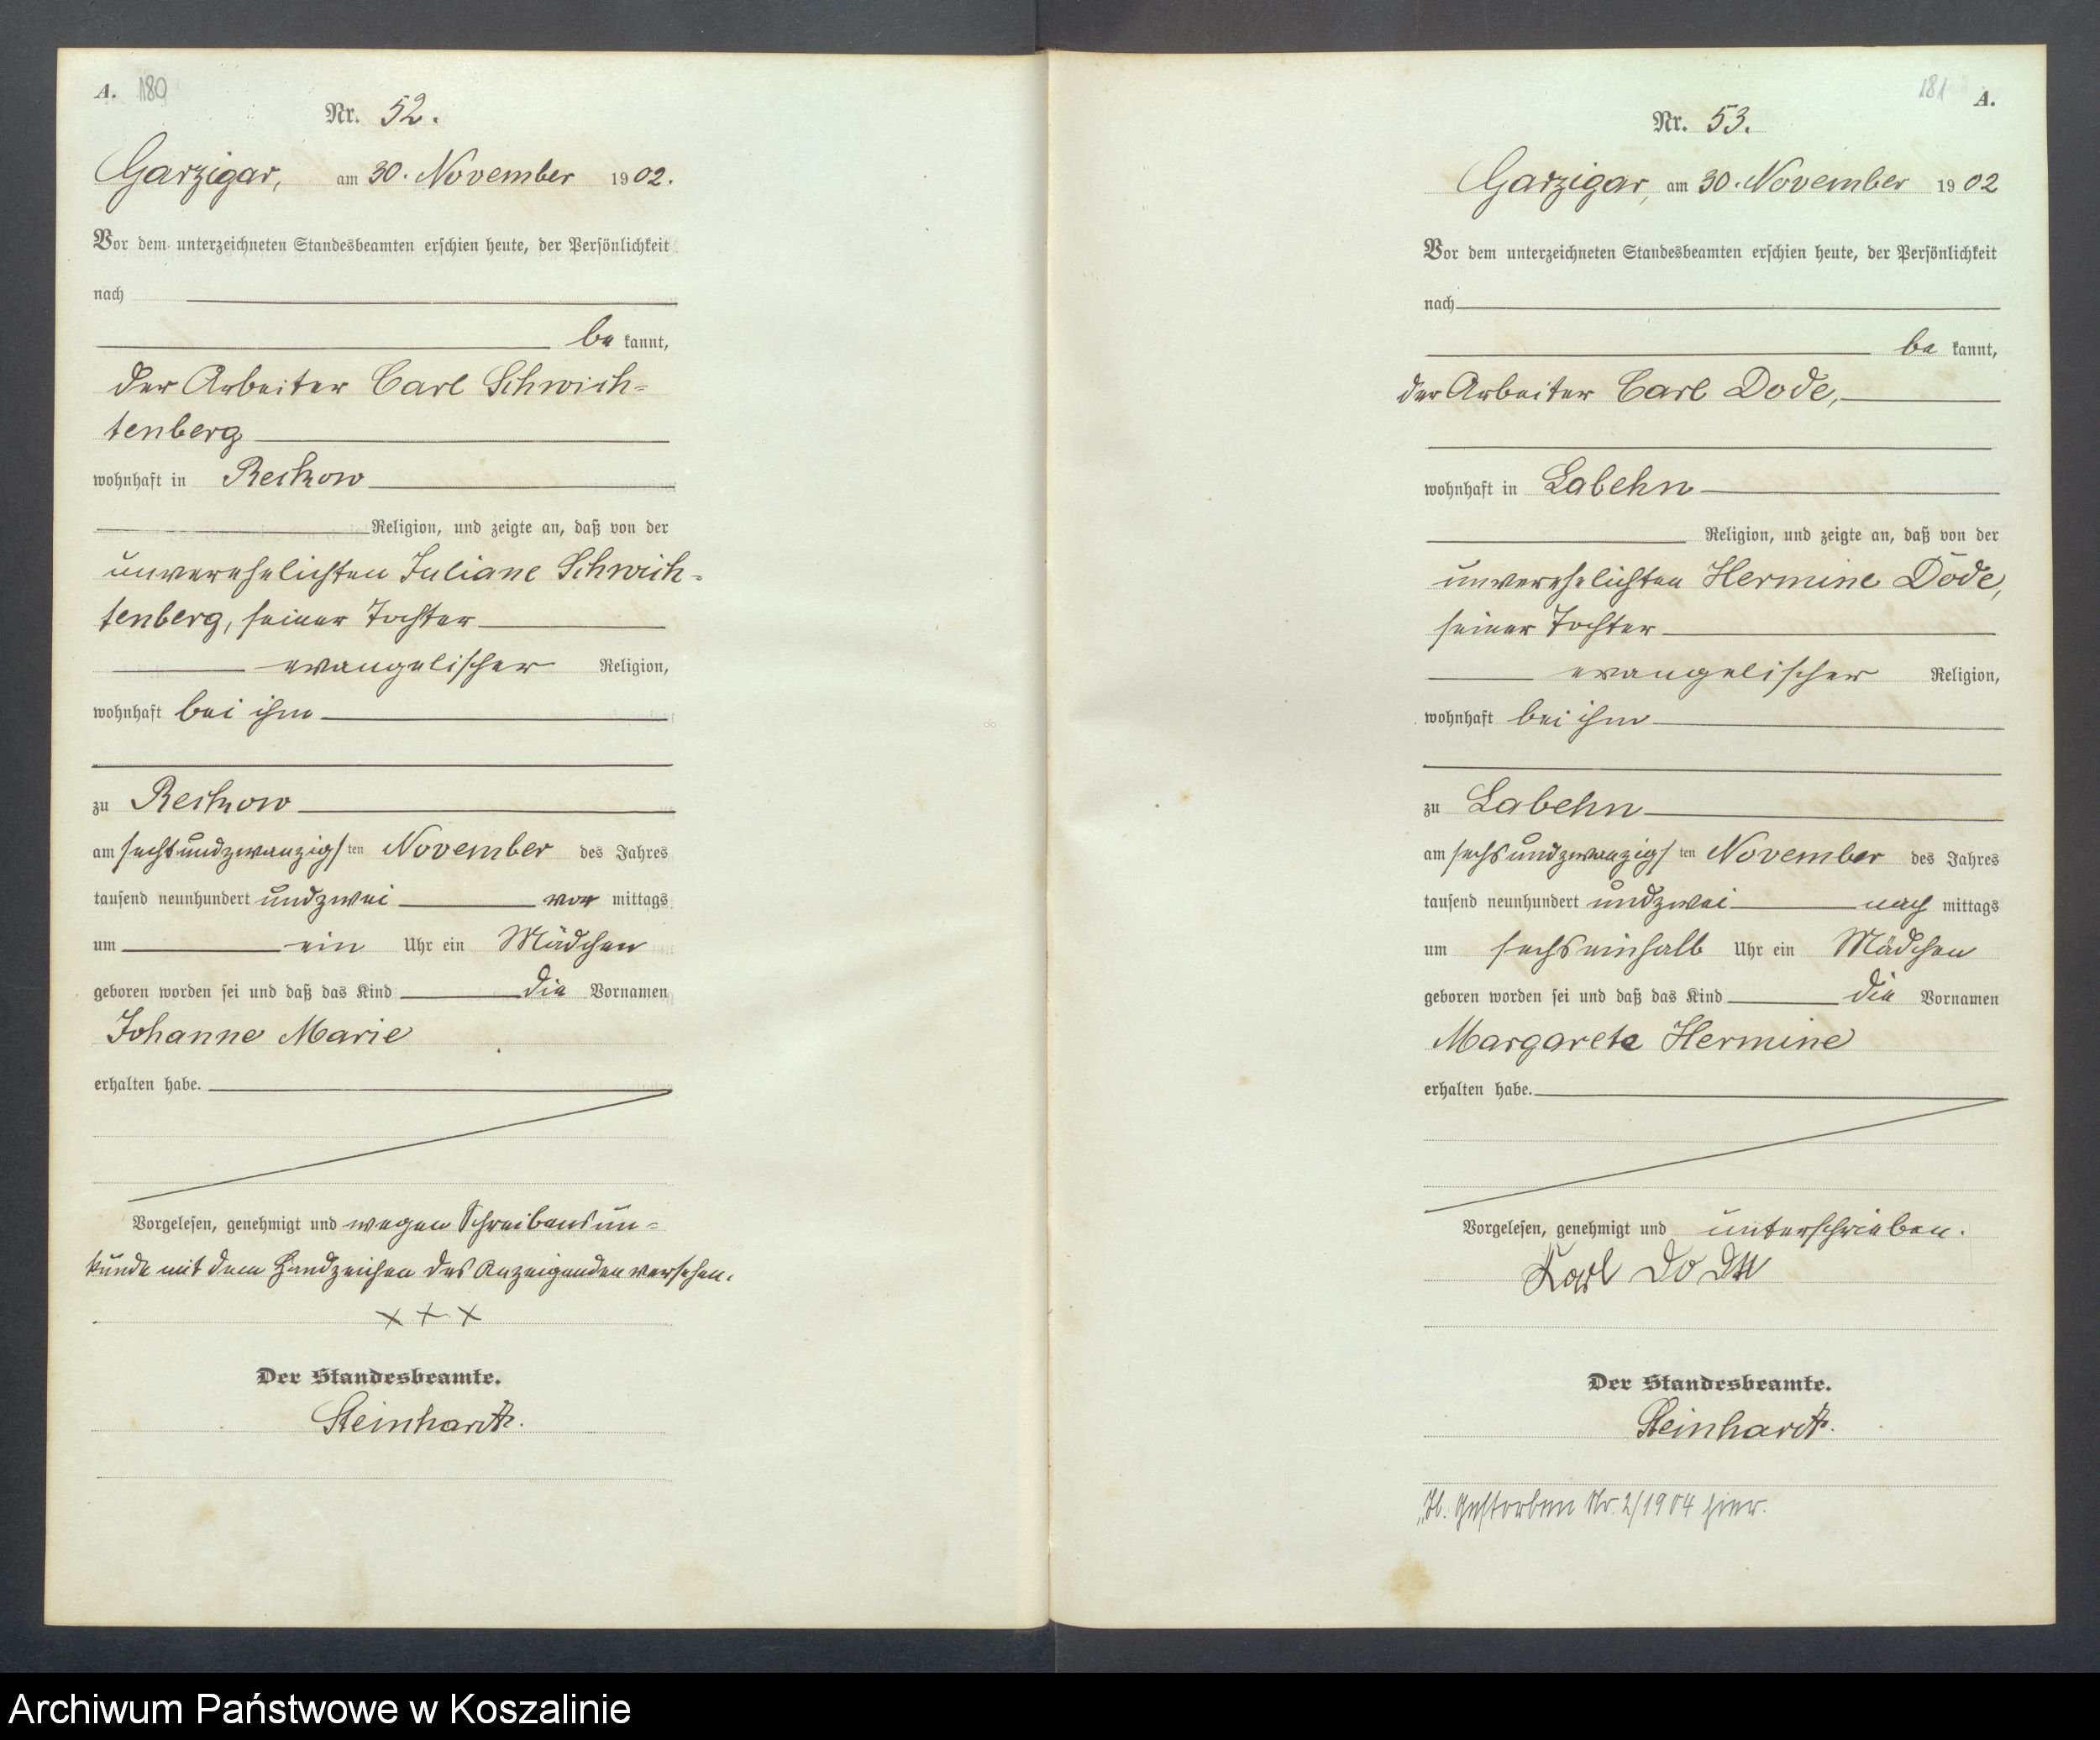 A. 180
Nr. 52.
Garzigar, am 30. November 1902.
Vor dem unterzeichneten Standesbeamten erschien heute, der Persönlichkeit
nach
be kannt,
der Arbeiter Carl Schwich=
tenberg
wohnhaft in Reckow
Religion, und zeigte an, daß von der
unverehelichten Juliane Schwich=
tenberg, seiner Tochter
evangelischer Religion,
wohnhaft bei ihm
zu Reckow
am sechsundzwanzigsten November des Jahres
tausend neunhundert undzwei vor mittags
um ein Uhr ein Mädchen
geboren worden sei und daß das Kind die Vornamen
Johanne Marie
erhalten habe.
Vorgelesen, genehmigt und wegen Schreibensun=
kunde mit dem Handzeichen des Anzeigenden versehen.
+ + +
Der Standesbeamte.
Steinhardt.
181 A.
Nr. 53.
Garzigar, am 30. November 1902
Vor dem unterzeichneten Standesbeamten erschien heute, der Persönlichkeit
nach
be kannt,
der Arbeiter Carl Dode,
wohnhaft in Labehn
Religion, und zeigte an, daß von der
unverehelichten Hermine Dode,
seiner Tochter
evangelischer Religion,
wohnhaft bei ihm
zu Labehn
am sechsundzwanzigsten November des Jahres
tausend neunhundert undzwei nach mittags
um sechseinhalb Uhr ein Mädchen
geboren worden sei und daß das Kind die Vornamen
Margarete Hermine
erhalten habe.
Vorgelesen, genehmigt und unterschrieben.
Karl Dode
Der Standesbeamte.
Steinhardt.
Gestorben Nr. 2/1904 hier.
Archiwum Państwowe w Koszalinie